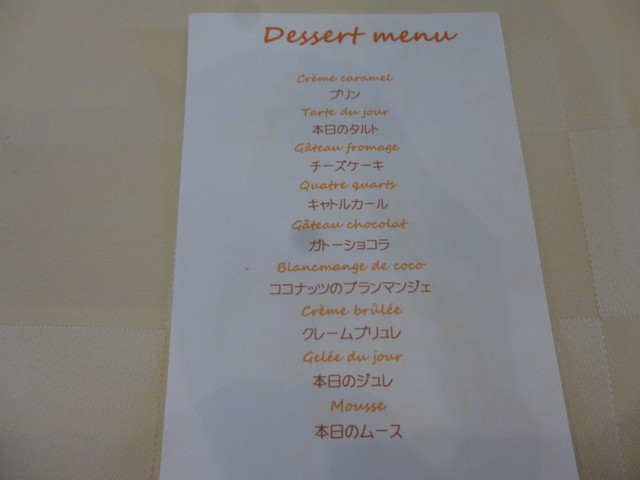 Dessert menu
Crème caramel
プリン
Tarte du jour
本日のタルト
Gâteau fromage
チーズケーキ
Quatre quarts
キャトルカール
Gâteau chocolat
ガトーショコラ
Blancmange de coco
ココナッツのブランマンジェ
Crème brûlée
クレームブリュレ
Gelée du jour
本日のジュレ
Mousse
本日のムース